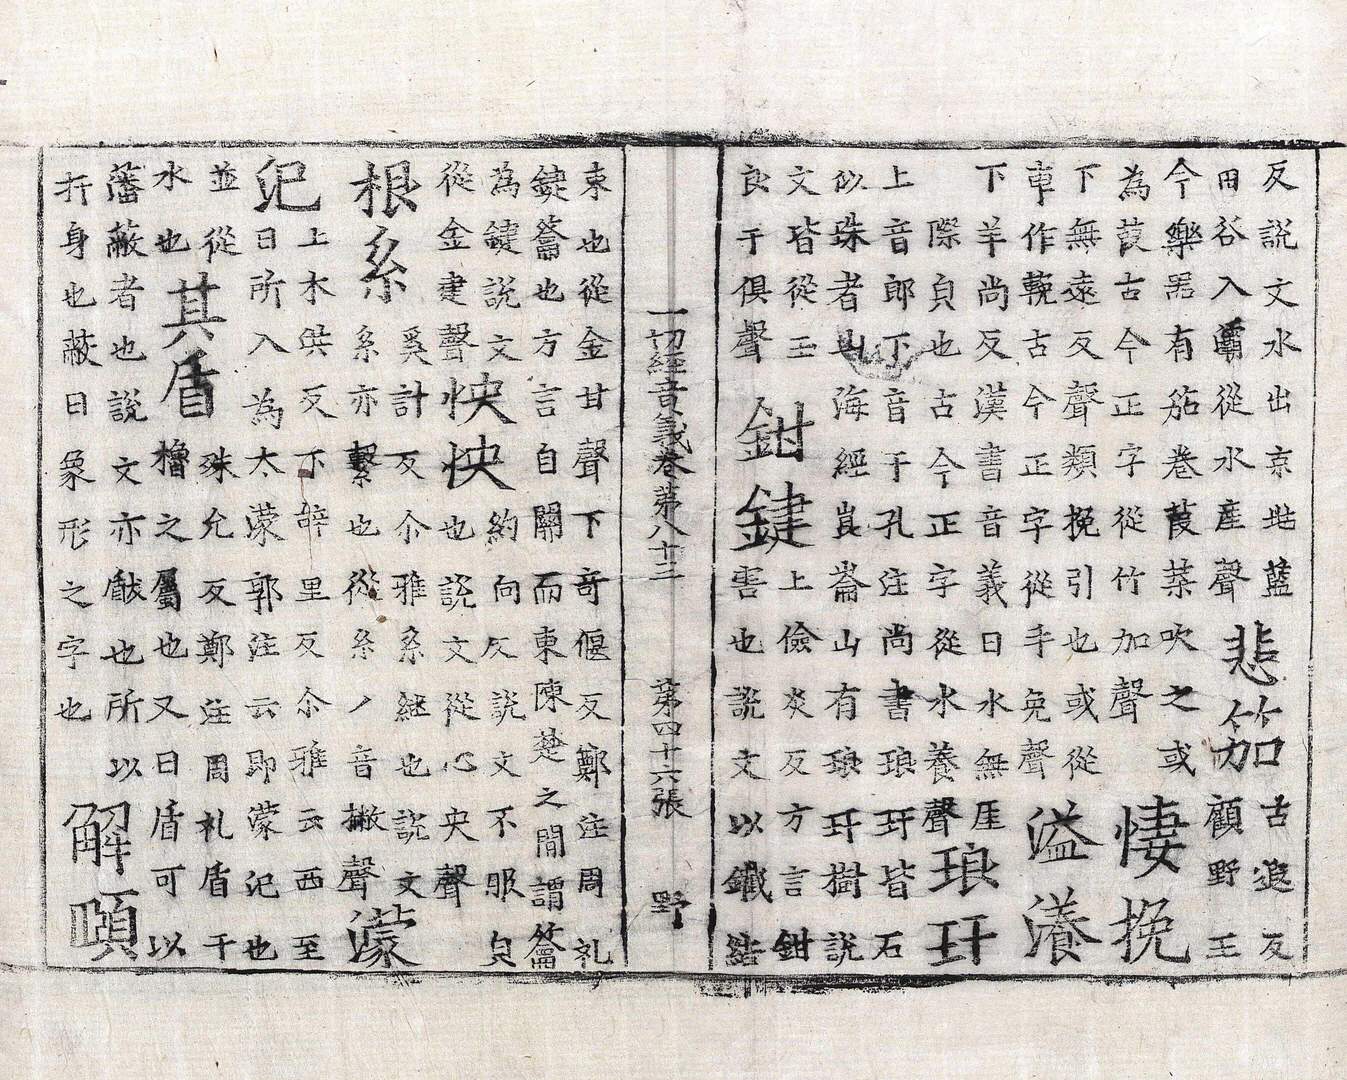 反說文水出京兆藍
田谷入灞從水產聲
悲笳
古追反
顧野王
今樂器有笳卷葭葉吹之或
為葭古今正字從竹加聲
悽挽
下無遠反聲類挽引也或從
車作輓古今正字從手免聲
溢瀁
下羊尚反漢書音義曰水無厓
際皃也古今正字從水養聲
琅玕
上音郎下音于孔注尚書琅玕皆石
似珠者山海經崑崙山有琅玕樹說
文皆從玉
良于俱聲
鉗鍵
上儉炎反方言鉗
害也說文以鐵結
一切經音義卷第八十三 第四十六張 野
束也從金甘聲下奇偃反鄭注周礼
鍵籥也方言自關而東陳楚之間謂籥
為鍵說文
從金建聲
怏怏
約向反說文不服皃
也說文從心央聲
根系
奚計反尒雅系継也說文
系亦繫也從糸丿音撇聲
濛
汜
上木供反下辝里反尒雅云西至
日所入為太濛郭注云即濛汜也
並從
水也
其盾
殊允反鄭注周礼盾干
櫓之屬也又曰盾可以
藩蔽者也說文亦瞂也所以
扞身也蔽目象形之字也
解頤